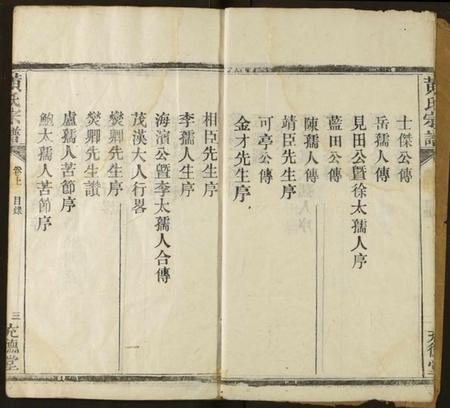 黃氏宗譜
士傑公傳
岳孺人傳
見田公暨徐太孺人序
藍田公傳
陳孺人傳
靖臣先生序
可亭公傳
金才先生序
相臣先生序
李孺人生序
海濱公暨李太孺人合傳
茂漢大人行畧
燮卿先生序
燮卿先生讃
盧孺人苦節序
鮑太孺人苦節序
黃氏宗譜
卷上
目錄
三
充德堂